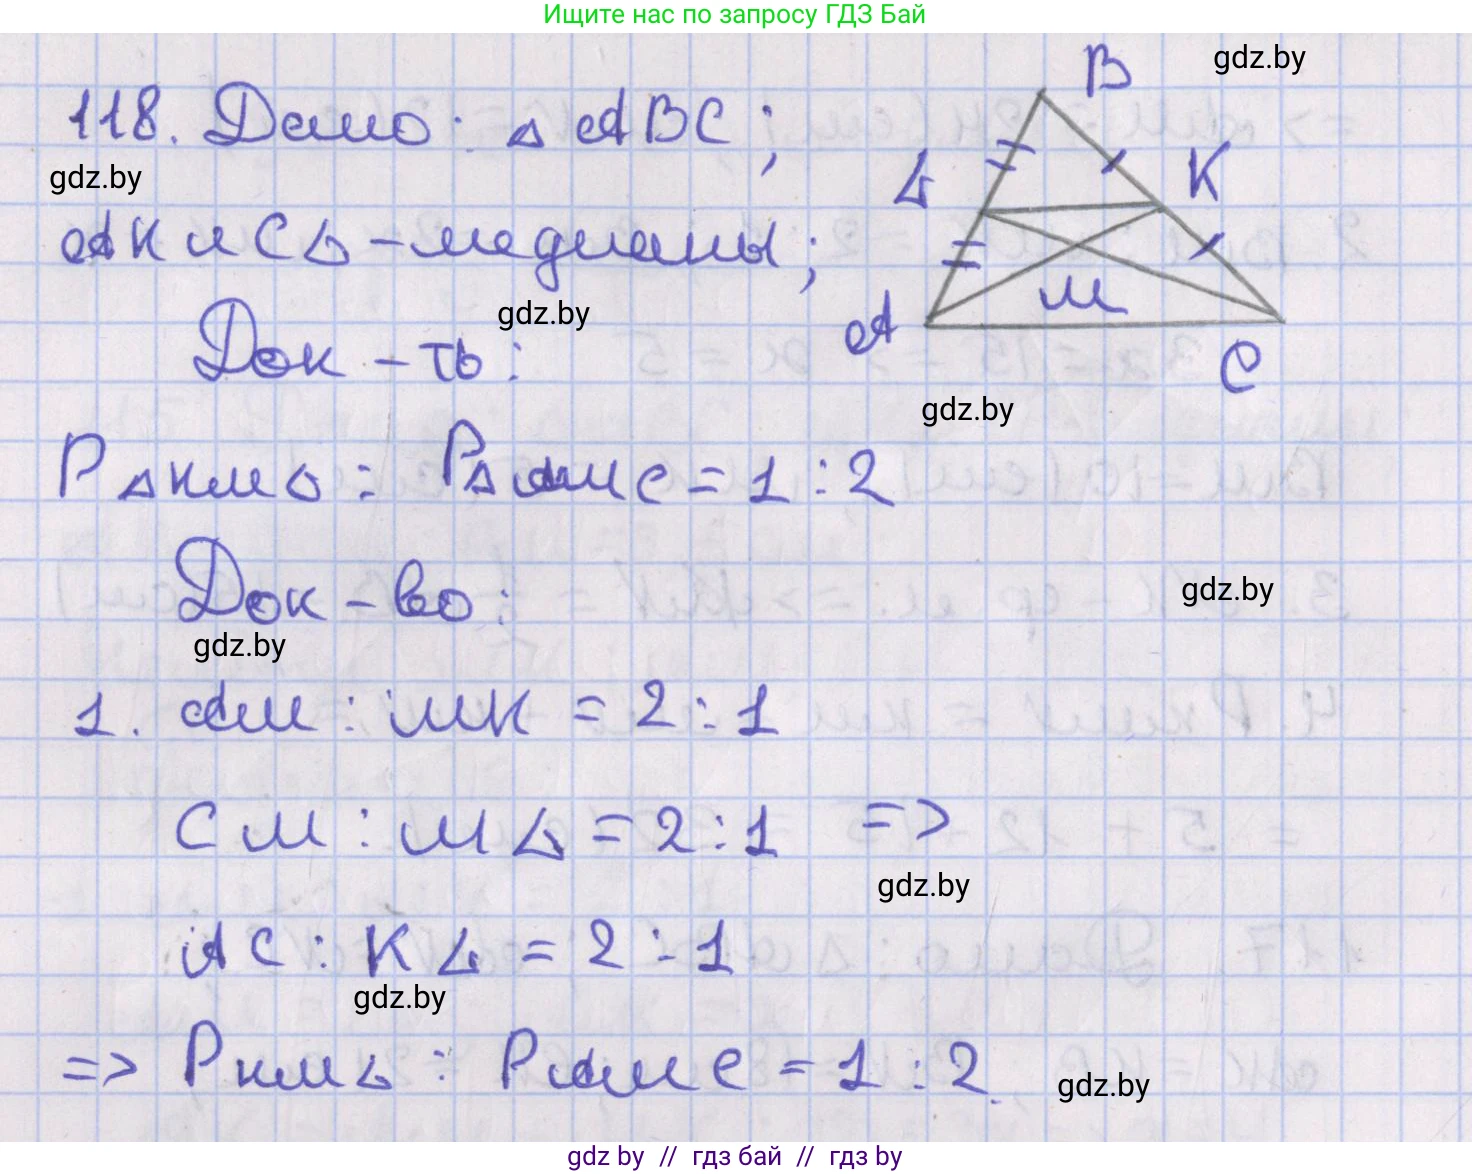 Ищите нас по запросу ГДЗ Бай
118. Дано: △ ABC;
B
gdz.by
L
K
gdz.by
AK и CL – медианы;
M
gdz.by
A
C
Док – ть:
gdz.by
P△KML : P△AMC = 1 : 2
Док – во:
gdz.by
gdz.by
1. AM : MK = 2 : 1
CM : ML = 2 : 1 =>
gdz.by
AC : KL = 2 : 1
gdz.by
=> PKML : PAMC = 1 : 2.
gdz.by
gdz by // гдз бай // гдз by